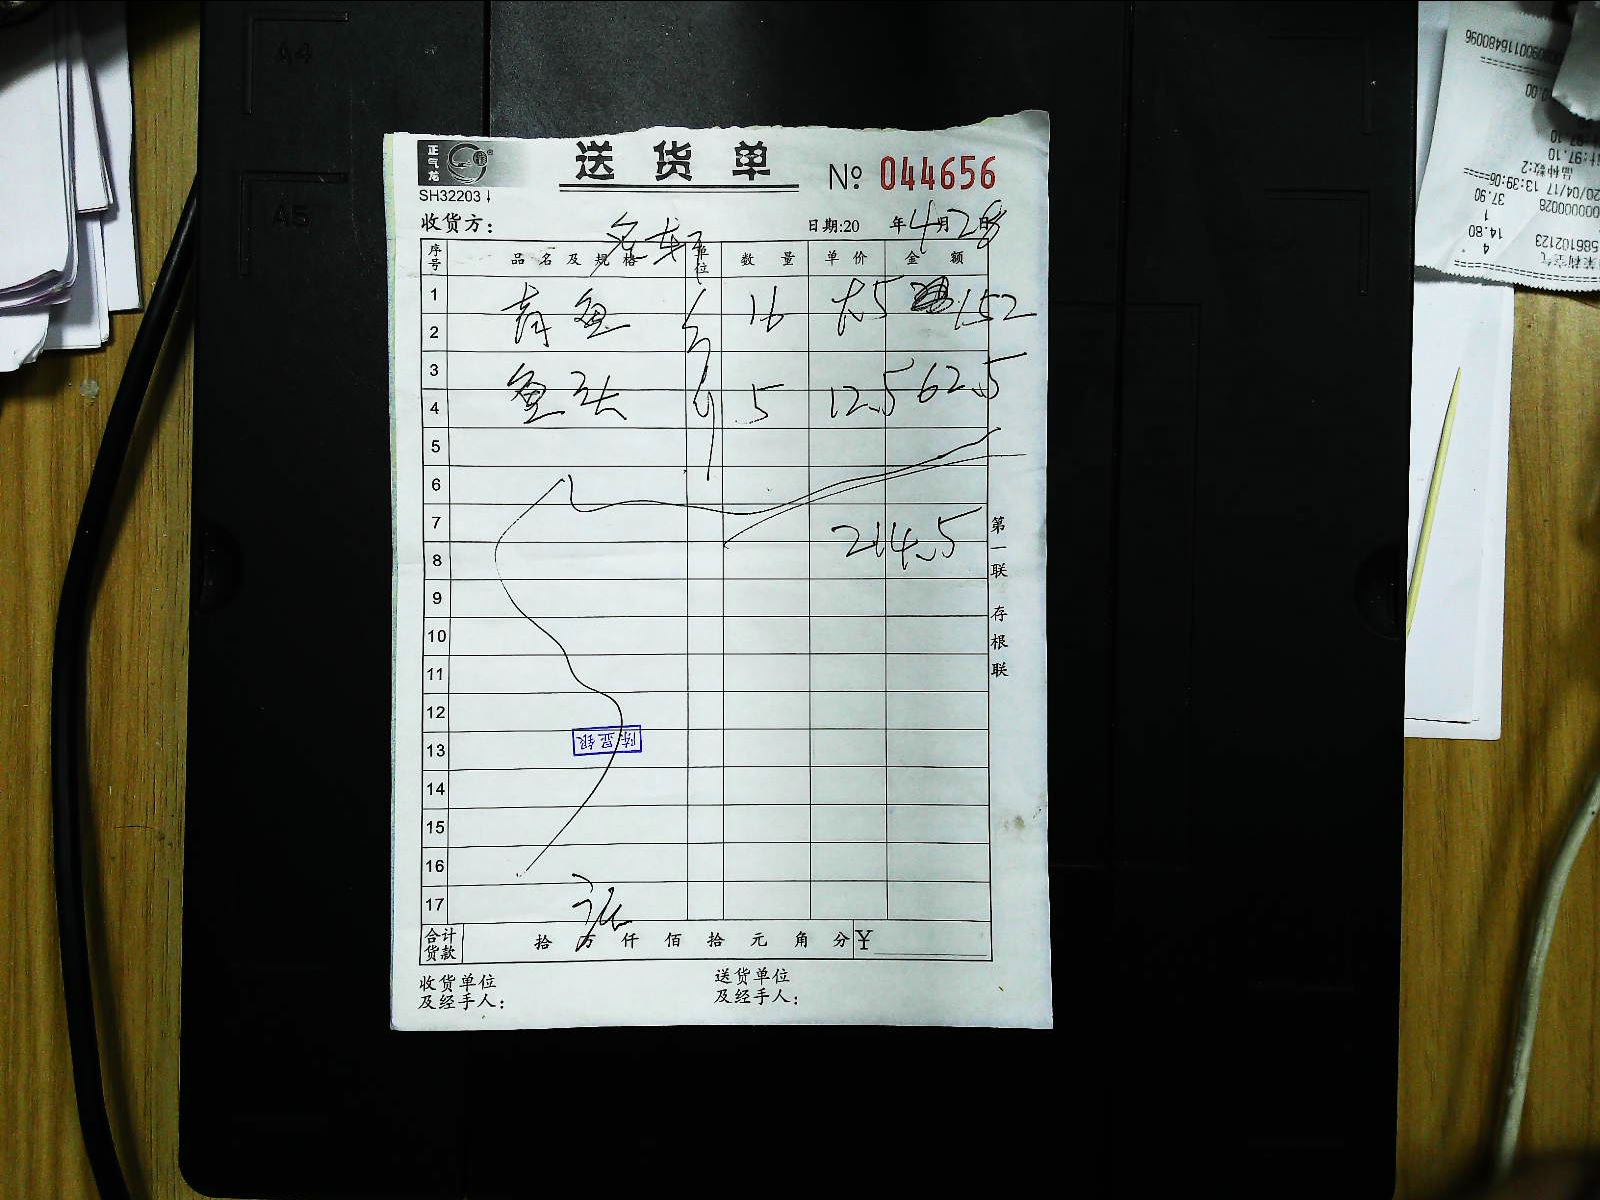 A4
A5
正气龙
送货单
№ 044656
SH32203
收货方:
日期:20 年4月28日
序号 品名及规格 单位 数量 单价 金额
1
青鱼 16 152
2
3
鱼头 5 12.5 62.5
4
5
6
7
214.5
8
9
10
11
12
13
陈显银
14
15
16
17
合计货款 拾万仟佰拾元角分 ¥
收货单位
及经手人:
送货单位
及经手人:
第一联 存根联
37.90
14.80 1
4